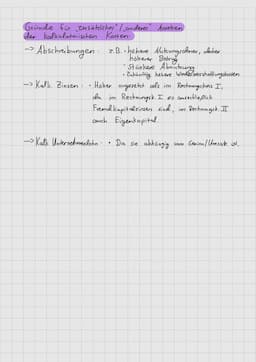 Gründe für "zusätzlichen"/"anderen" Ansetzen
der kalkulatorischen Kosten
→ Abschreibungen: z.B. • höhere Nutzungsdauer, daher
höherer Betrag
• Stärkere Abnutzung
• Zukünftig höhere Wiederbeschaffungskosten
→ Kalk. Zinsen: • Höher angesetzt als im Rechnungskreis I,
da im Rechnungsk. I es ausschließlich
Fremdkapitalzinsen sind, im Rechnungsk. II
auch Eigenkapital.
→ Kalk. Unternehmerlohn: • Da sie abhängig vom Gewinn/Umsatz ist.